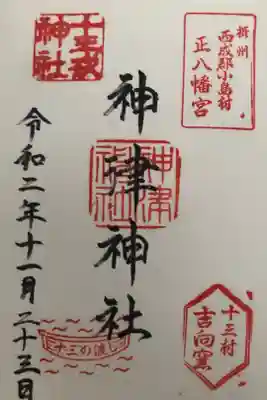 摂州
西成郡小島村
正八幡宮
十三戎
神社
神津神社
神津
神社
令和二年十一月二十三日
十三の渡し
十三村
吉向窯